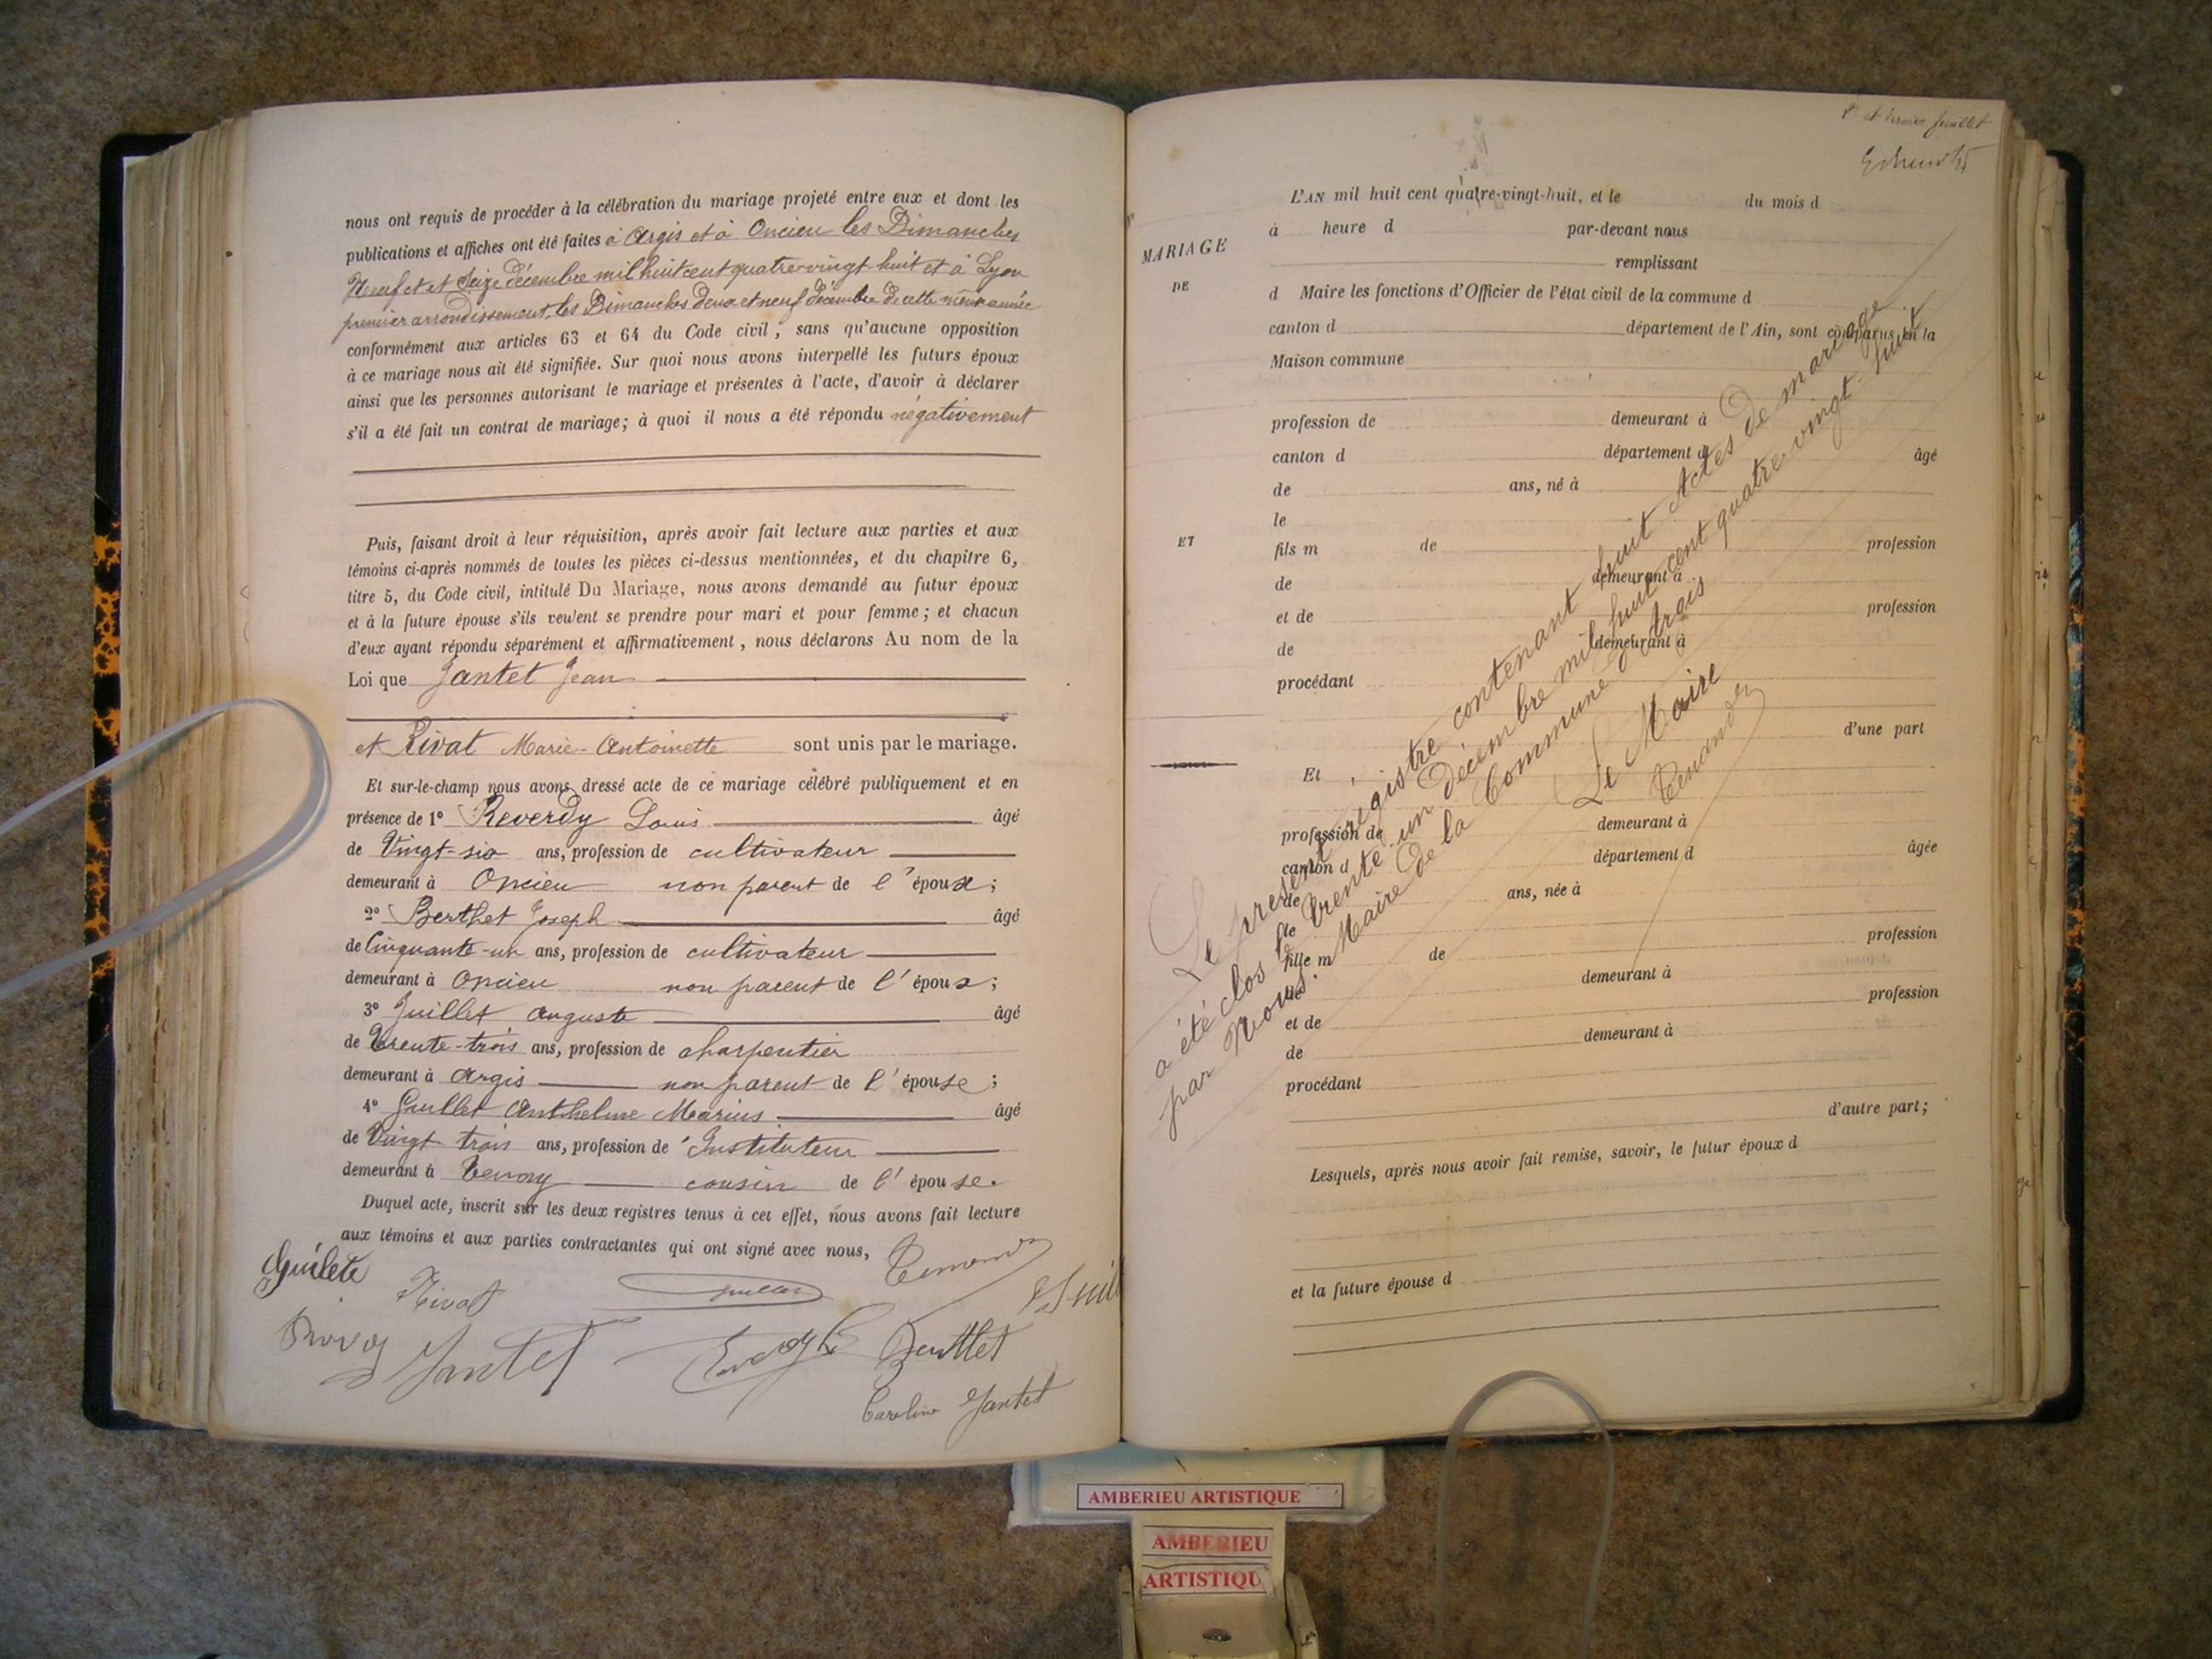 nous ont requis de procéder à la célébration du mariage projeté entre eux et dont les
publications et affiches ont été faites à Argis et à Oncieu les Dimanches
Neuf et et Seize décembre mil huit cent quatre-vingt-huit et à Lyon
premier arrondissement, les Dimanches deux et neuf décembre de cette même année
conformément aux articles 63 et 64 du Code civil, sans qu'aucune opposition
à ce mariage nous ait été signifiée. Sur quoi nous avons interpellé les futurs époux
ainsi que les personnes autorisant le mariage et présentes à l'acte, d'avoir à déclarer
s'il a été fait un contrat de mariage; à quoi il nous a été répondu négativement
Puis, faisant droit à leur réquisition, après avoir fait lecture aux parties et aux
témoins ci-après nommés de toutes les pièces ci-dessus mentionnées, et du chapitre 6,
titre 5, du Code civil, intitulé Du Mariage, nous avons demandé au futur époux
et à la future épouse s'ils veulent se prendre pour mari et pour femme; et chacun
d'eux ayant répondu séparément et affirmativement, nous déclarons Au nom de la
Loi que Jantet Jean
et Rivat Marie-Antoinette sont unis par le mariage.
Et sur-le-champ nous avons dressé acte de ce mariage célébré publiquement et en
présence de 1° Reverdy Louis âgé
de Vingt-six ans, profession de cultivateur
demeurant à Oncieu non parent de l'époux;
2° Berthet Joseph âgé
de Cinquante-un ans, profession de cultivateur
demeurant à Oncieu non parent de l'époux;
3° Juillet Auguste âgé
de Trente-trois ans, profession de charpentier
demeurant à Argis non parent de l'épouse;
4° Guillet Anthelme Marius âgé
de Vingt trois ans, profession de Instituteur
demeurant à Tenay cousin de l'épouse.
Duquel acte, inscrit sur les deux registres tenus à cet effet, nous avons fait lecture
aux témoins et aux parties contractantes qui ont signé avec nous,
Rivat
Jantet
Berthet
Caroline Jantet
et dernier feuillet
MARIAGE
DE
ET
L'AN mil huit cent quatre-vingt-huit, et le du mois d
à heure d par-devant nous
remplissant
d Maire les fonctions d'Officier de l'état civil de la commune d
canton d département de l'Ain, sont comparus en la
Maison commune
profession de demeurant à
canton d département d âgé
de ans, né à
le
fils m de profession
de demeurant à
et de profession
de demeurant à
procédant
d'une part
Et
profession de demeurant à
canton d département d âgée
de ans, née à
le
fille m de profession
de demeurant à
et de profession
de demeurant à
procédant
d'autre part;
Lesquels, après nous avoir fait remise, savoir, le futur époux d
et la future épouse d
Le présent régistre contenant huit Actes de mariage
a été clos le trente-un Décembre mil huit cent quatre-vingt-huit
par Nous. Maire de la Commune
Le Maire
AMBERIEU ARTISTIQUE
AMBERIEU
ARTISTIQU